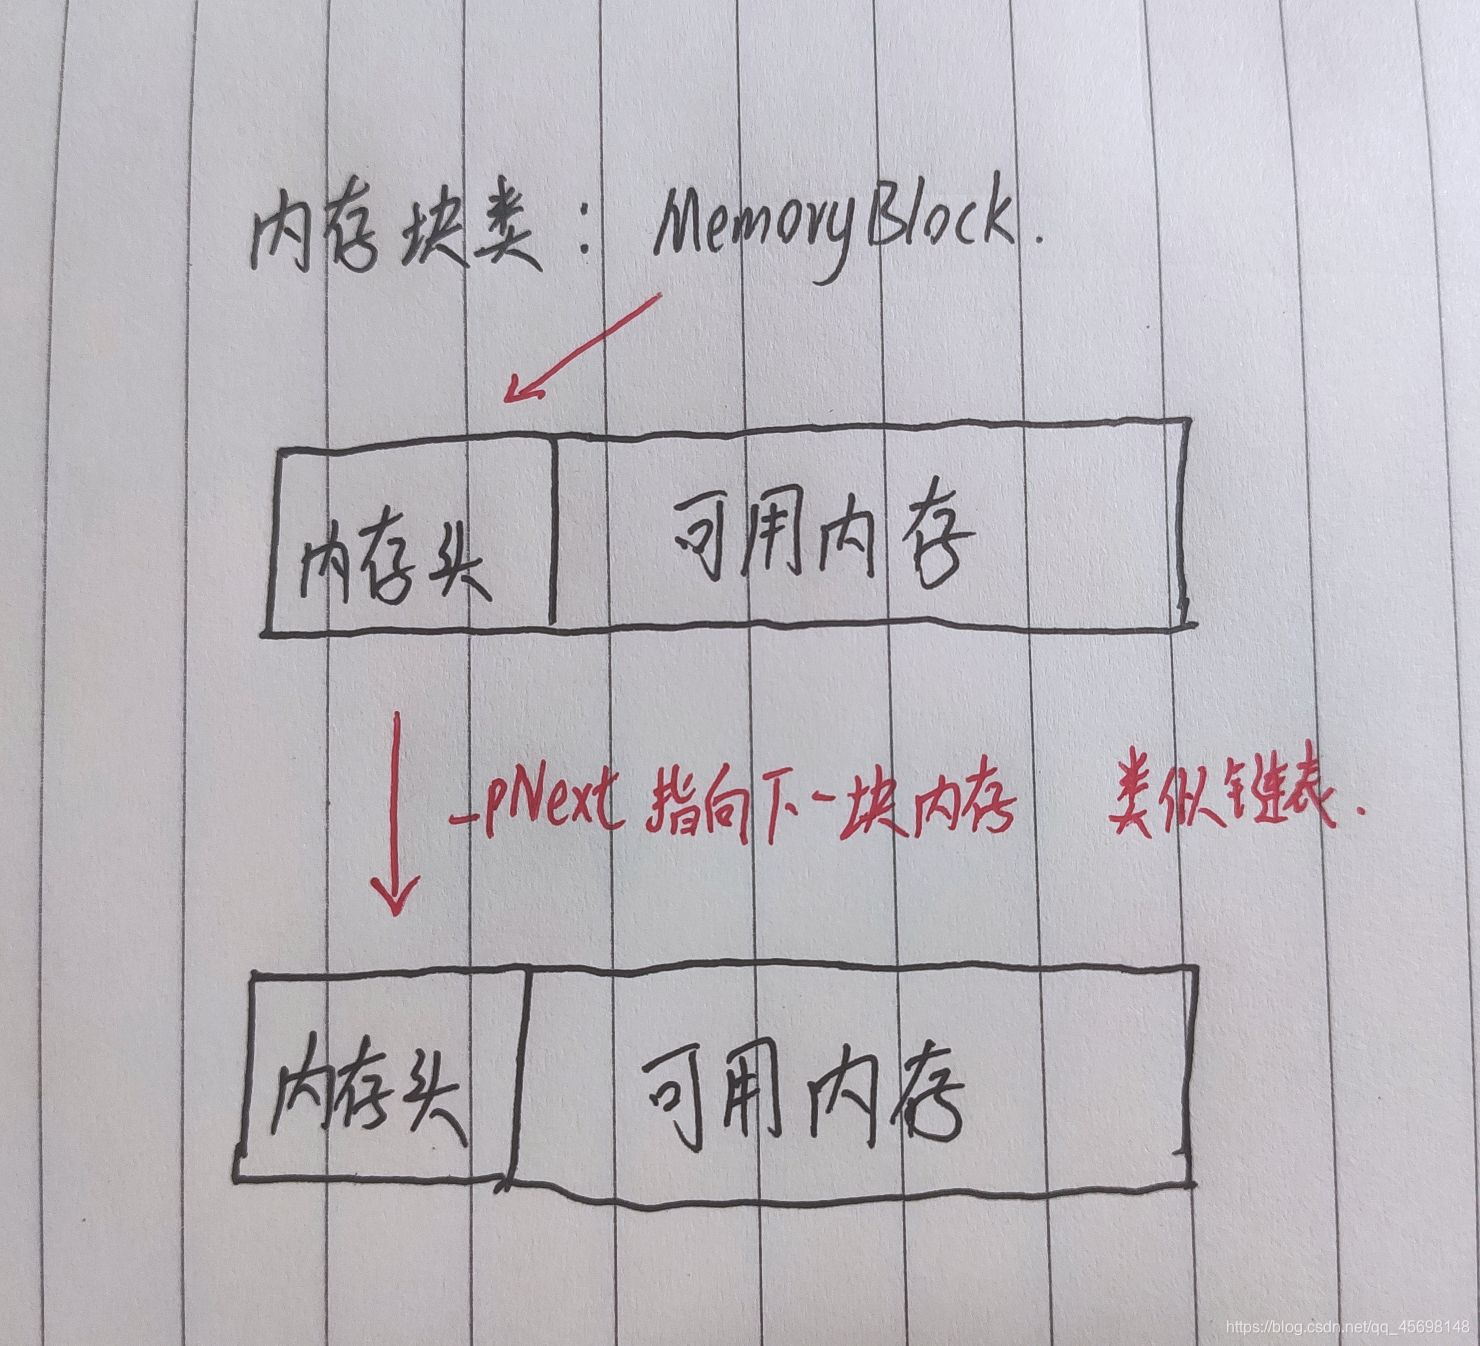 内存块类：MemoryBlock.
内存头 可用内存
_pNext 指向下一块内存 类似链表.
内存头 可用内存
https://blog.csdn.net/qq_45698148